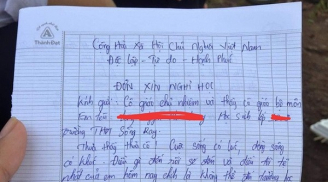 Thành Đạt
Cộng Hòa Xã Hội Chủ Nghĩa Việt Nam
Độc lập - Tự do - Hạnh Phúc
ĐƠN XIN NGHỈ HỌC
Kính gửi: Cô giáo chủ nhiệm và thầy cô giáo bộ môn
Em tên Học Sinh lớp
trường THPT Sông Ray.
Thưa thầy thưa cô! Cuộc sống có lúc, dòng sông
có khúc. Điều gì đến rồi sẽ đến và điều tồi tệ
nhất của em hôm nay chính là không thể tới trường học